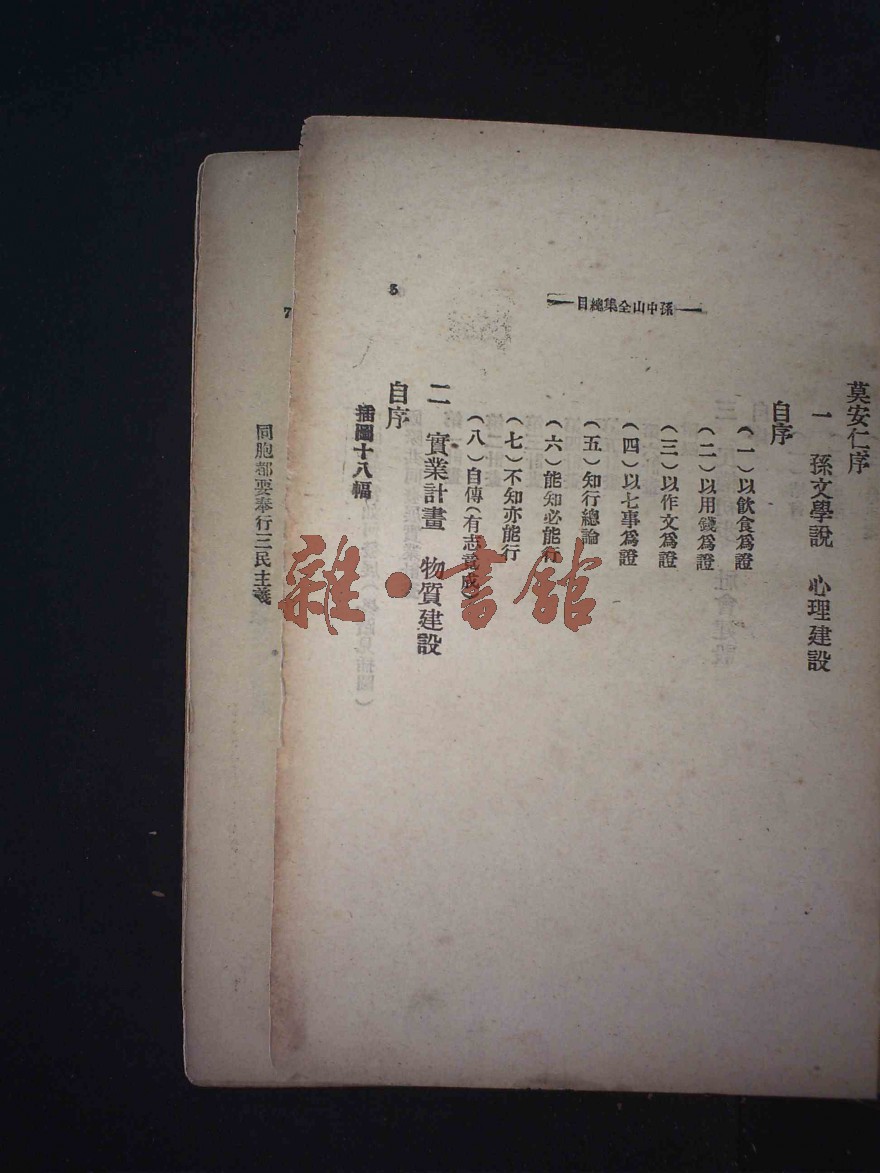 孫中山全集總目
5
莫安仁序
一 孫文學説 心理建設
自序
(一)以飲食爲證
(二)以用錢爲證
(三)以作文爲證
(四)以七事爲證
(五)知行總論
(六)能知必能行
(七)不知亦能行
(八)自傳(有志竟成)
二 實業計畫 物質建設
自序
插圖十八幅
7
同胞都要奉行三民主義
雜·書館